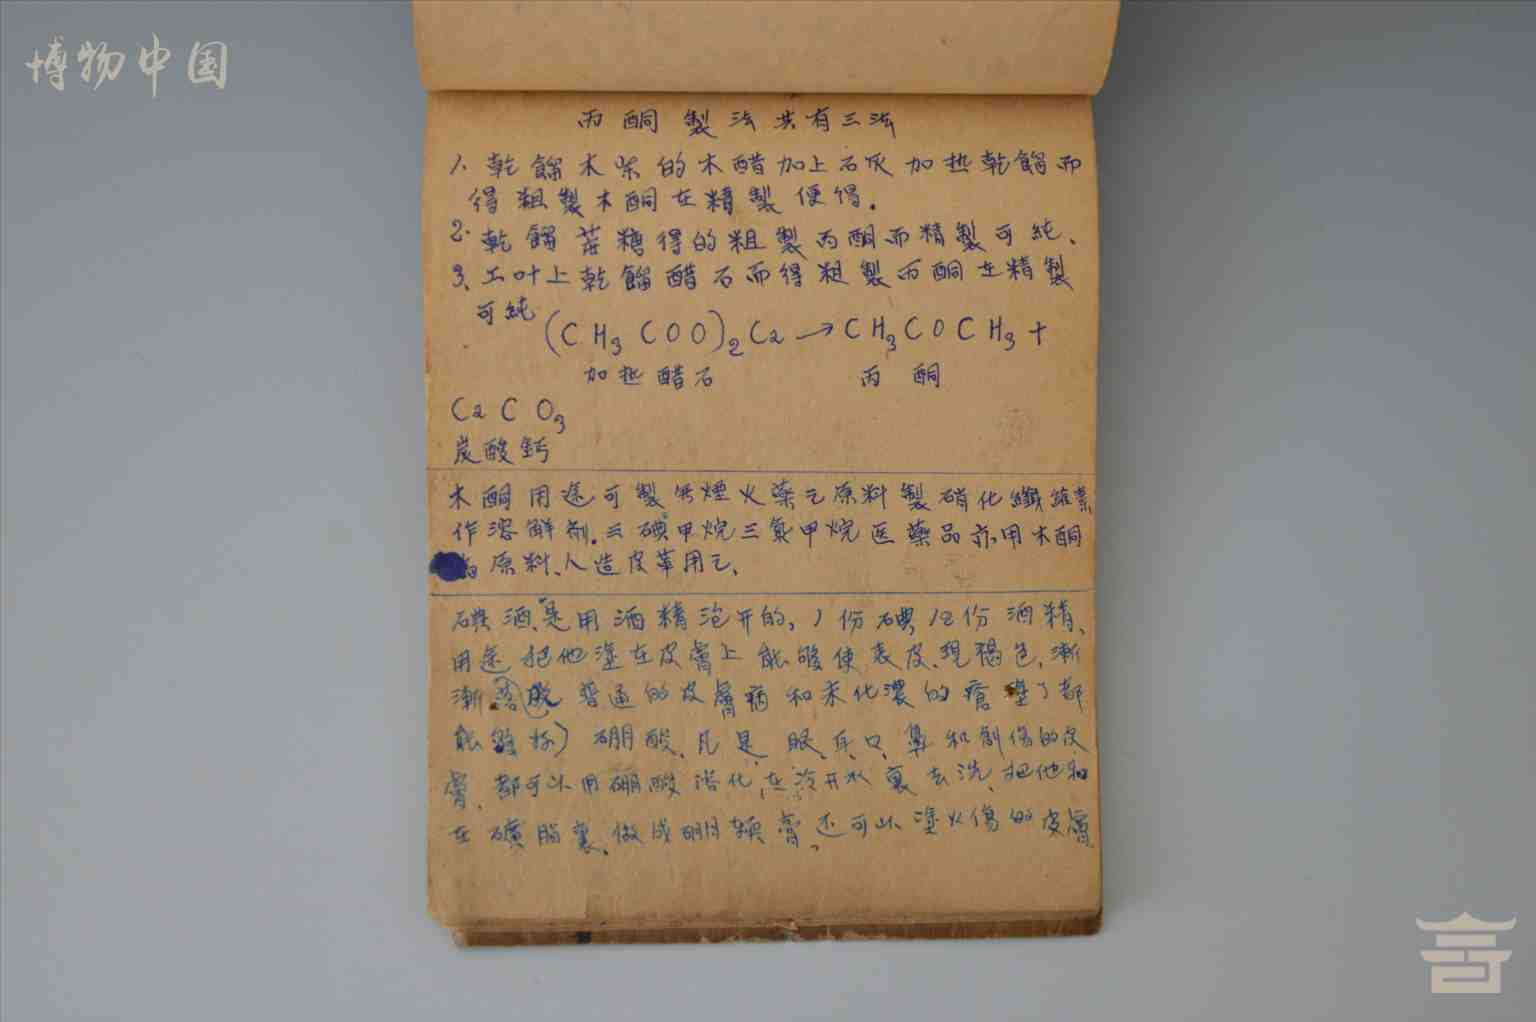 博物中国
丙酮製法共有三法
1. 乾餾木柴的木醋加上石灰加热乾餾而
得粗製木酮在精製便得.
2. 乾餾蔗糖得的粗製丙酮而精製可純、
3、工叶上乾餾醋石而得粗製丙酮在精製
可純
(CH₃COO)₂Ca → CH₃COCH₃ +
加热醋石 丙酮
CaCO₃
炭酸鈣
木酮用途可製無煙火藥之原料製硝化纖維素
作溶解剂.三碘甲烷三氯甲烷医藥品亦用木酮
原料、人造皮革用之、
碘酒、是用酒精泡开的,1份碘18份酒精、
用途把他塗在皮膚上能够使表皮、現褐色、漸
漸落脱普通的皮膚病和未化濃的瘡塗了都
能够好)硼酸、凡是眼、耳、口、鼻和創傷的皮
膚、都可以用硼酸溶化在冷开水裏去洗、把他和
在礦脂裏、做成硼酸軟膏、还可以塗火傷的皮膚